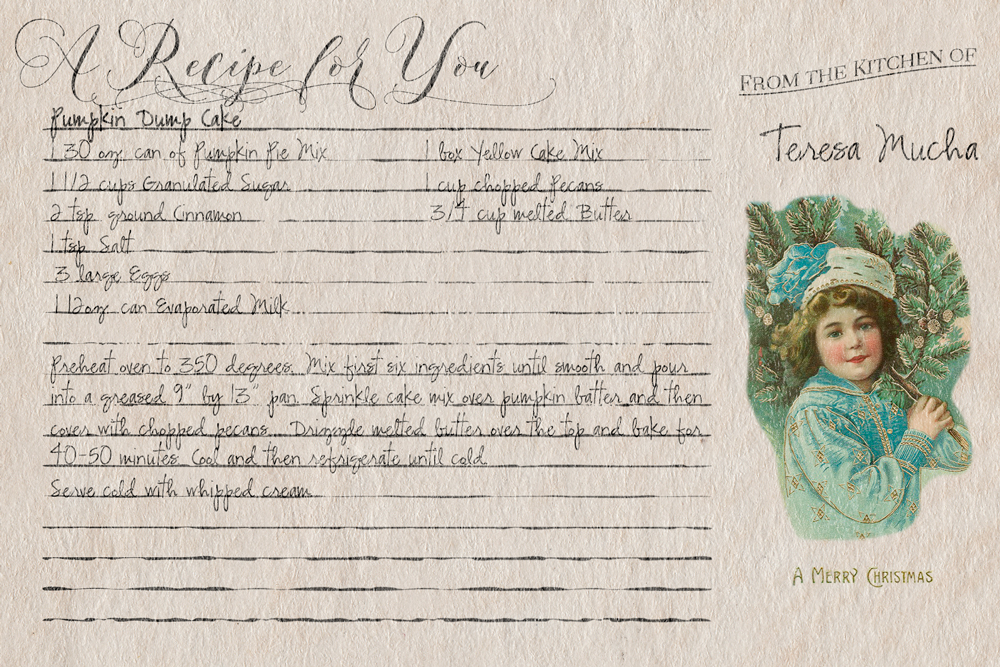 A Recipe for You
FROM THE KITCHEN OF
Teresa Mucha
Pumpkin Dump Cake
1 30 oz, can of Pumpkin Pie Mix
1 1/2 cups Granulated Sugar
2 tsp ground Cinnamon
1 tsp Salt
3 large Eggs
1 12oz can Evaporated Milk
1 box Yellow Cake Mix
1 cup chopped Pecans
3/4 cup melted Butter
Preheat oven to 350 degrees. Mix first six ingredients until smooth and pour
into a greased 9" by 13" pan. Sprinkle cake mix over pumpkin batter and then
cover with chopped pecans. Drizzle melted butter over the top and bake for
40-50 minutes. Cool and then refrigerate until cold.
Serve cold with whipped cream.
A MERRY CHRISTMAS